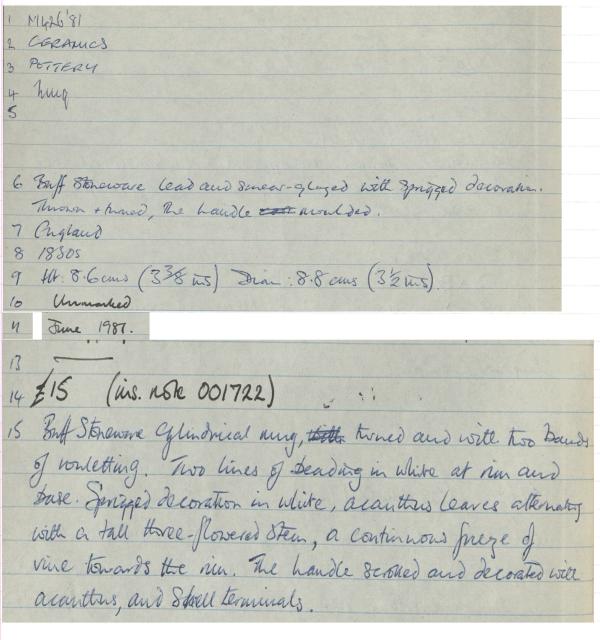 1 M426'81
2 CERAMICS
3 POTTERY
4 Mug
5
6 Buff Stoneware lead and smear-glazed with sprigged decoration.
Thrown + turned, the handle moulded.
7 England
8 1830s
9 Ht: 8.6cms (3 3/8 ins) Diam: 8.8 cms (3 1/2 ins).
10 Unmarked
11 June 1981.
13
14 £15 (ins. note 001722)
15 Buff Stoneware Cylindrical mug, turned and with two bands
of rouletting. Two lines of beading in white at rim and
base. Sprigged decoration in white, acanthus leaves alternating
with a tall three-flowered stem, a continuous frieze of
vine towards the rim. The handle scrolled and decorated with
acanthus, and shell terminals.